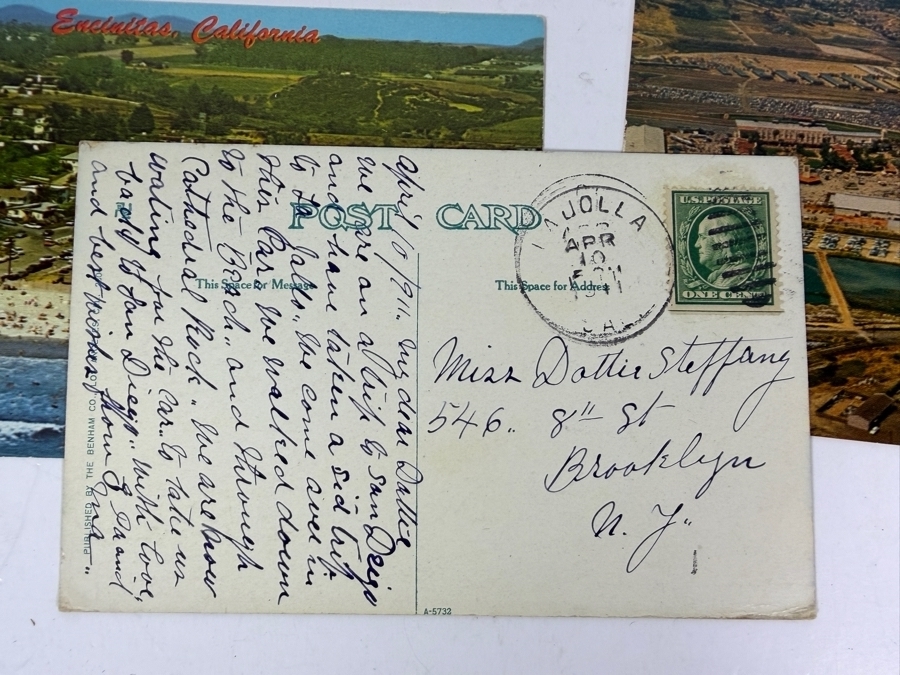 Encinitas, California
POST CARD
This Space for Message
This Space for Address
LA JOLLA
APR
10
1911
CAL.
U.S. POSTAGE
ONE CENT
April 10/1911. My dear Dottie
we are on a trip to San Deigo
and have taken a sid trip
to La Jolla. We come over in
this Car. We walked down
to the Beach, and through
Cathedral Rock. We are now
waiting for the Car. to take us
back to San Diego. With love,
and best wishes from Grand
Miss Dottie Steffany
546. 8" St
Brooklyn
N. Y.
PUBLISHED BY THE BENHAM CO.
A-5732